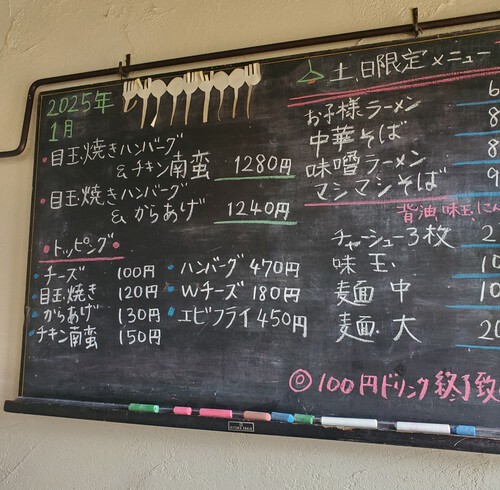 2025年
1月
目玉焼きハンバーグ
&チキン南蛮 1280円
目玉焼きハンバーグ
&からあげ 1240円
トッピング
チーズ 100円
目玉焼き 120円
からあげ 130円
チキン南蛮 150円
ハンバーグ 470円
Wチーズ 180円
エビフライ 450円
土、日限定メニュー
お子様ラーメン 6
中華そば 8
味噌ラーメン 8
マシマシそば 9
背油 味玉 にん
チャーシュー3枚 2
味玉 10
麺 中 10
麺 大 20
◎100円ドリンク終了致